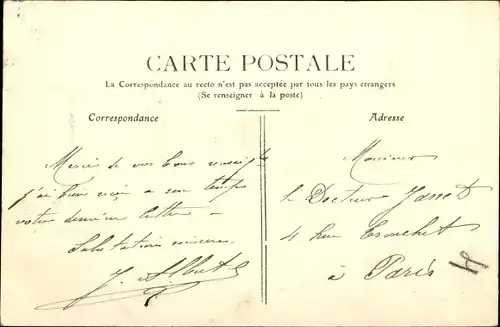 CARTE POSTALE
La Correspondance au recto n'est pas acceptée par tous les pays étrangers
(Se renseigner à la poste)
Correspondance
Adresse
Merci de vos bons
j'ai bien reçu en son temps
votre dernière lettre
Salutations sincères
J.
Monsieur
le Docteur Janet
4 Rue Tronchet
à Paris